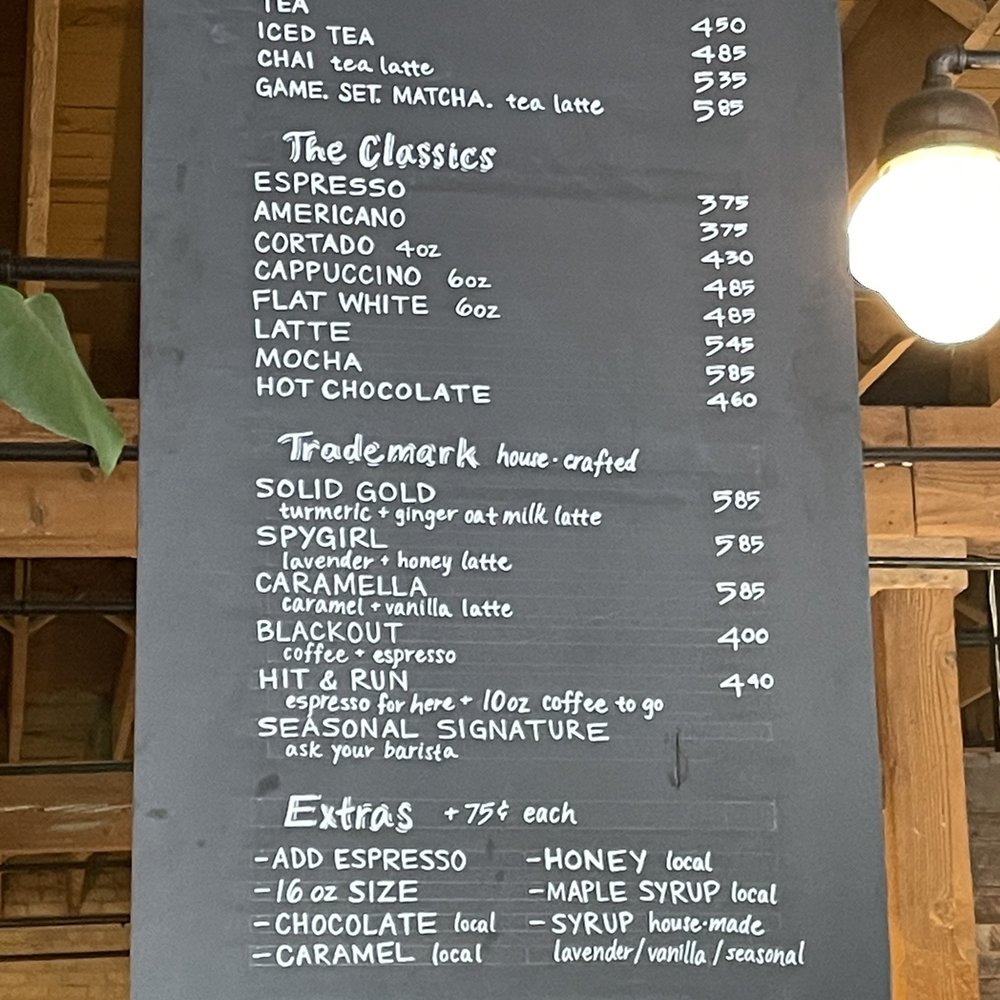 TEA 450
ICED TEA 485
CHAI tea latte 535
GAME. SET. MATCHA. tea latte 585
The Classics
ESPRESSO 375
AMERICANO 375
CORTADO 4oz 430
CAPPUCCINO 6oz 485
FLAT WHITE 6oz 485
LATTE 545
MOCHA 585
HOT CHOCOLATE 460
Trademark house·crafted
SOLID GOLD 585
turmeric + ginger oat milk latte
SPYGIRL 585
lavender + honey latte
CARAMELLA 585
caramel + vanilla latte
BLACKOUT 400
coffee + espresso
HIT & RUN 440
espresso for here + 10oz coffee to go
SEASONAL SIGNATURE
ask your barista
Extras +75¢ each
-ADD ESPRESSO
-16 oz SIZE
-CHOCOLATE local
-CARAMEL local
-HONEY local
-MAPLE SYRUP local
-SYRUP house·made
lavender/vanilla/seasonal